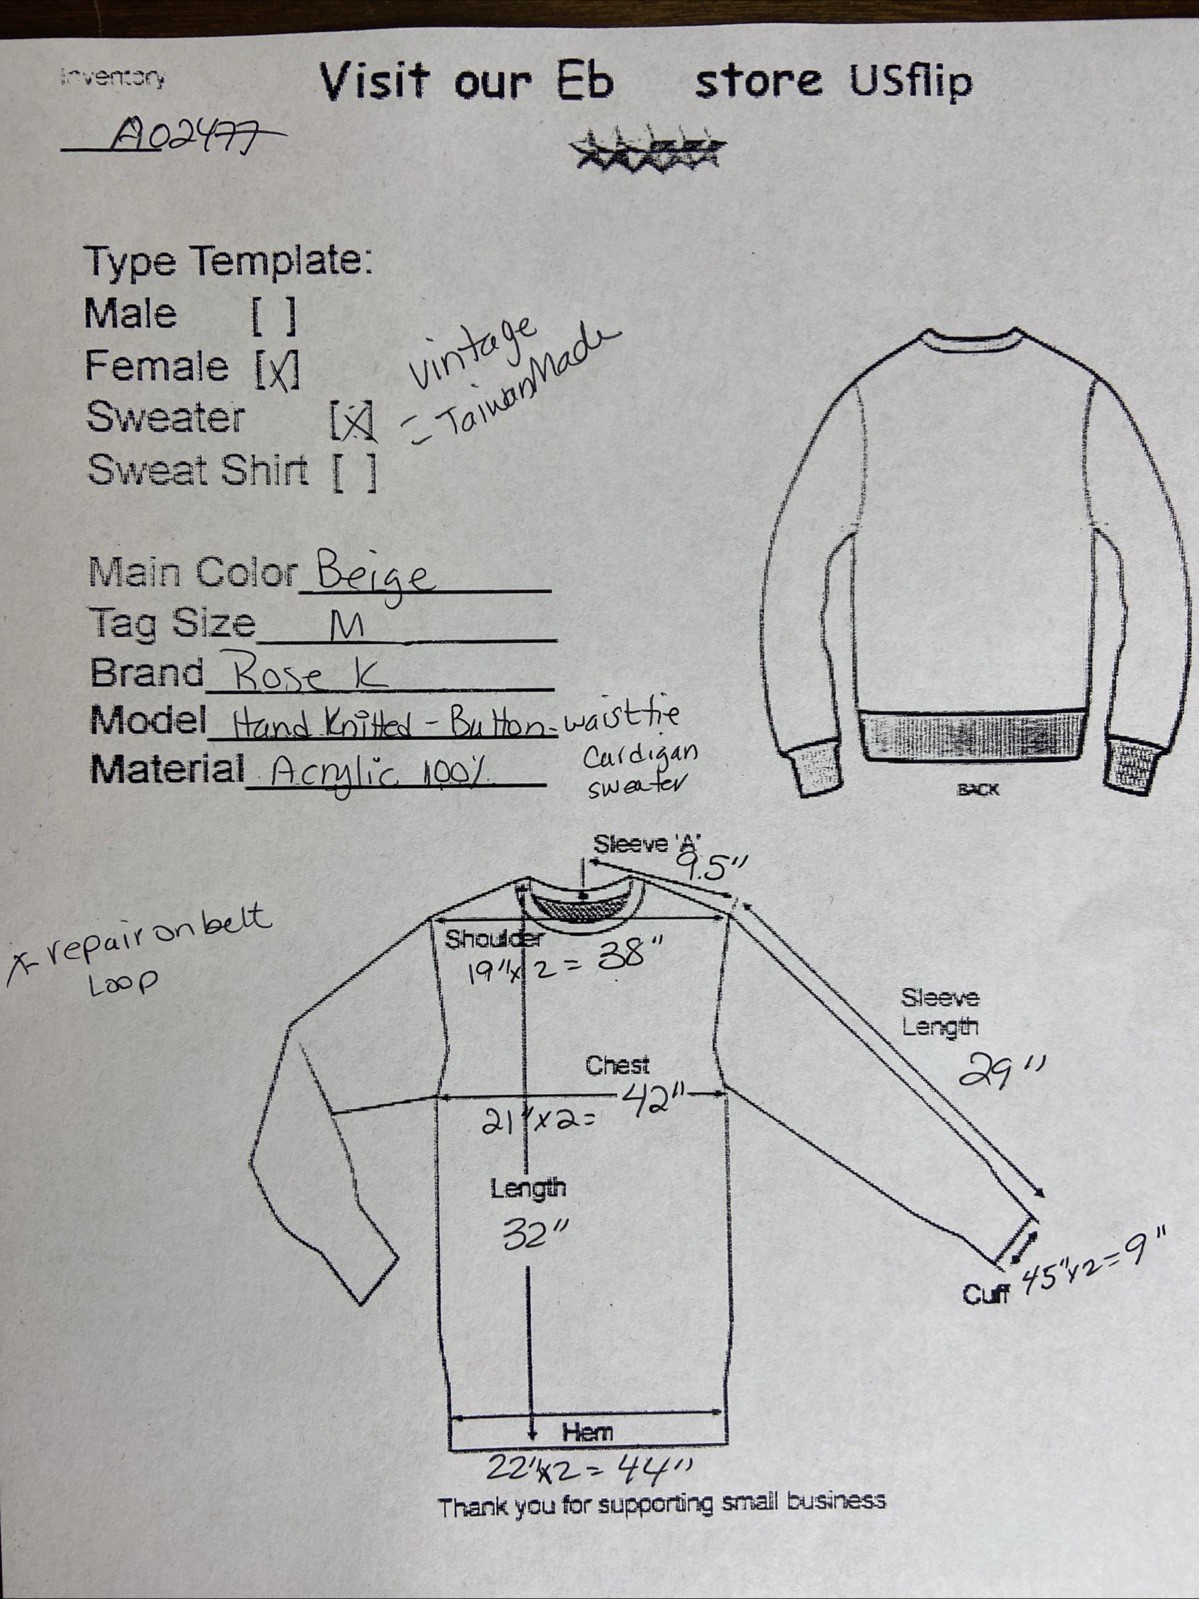 Inventory
A02477
Visit our Eb store USflip
Type Template:
Male [ ]
Female [x]
Sweater [x]
Sweat Shirt [ ]
vintage
= Taiwan Made
Main Color Beige
Tag Size M
Brand Rose K
Model Hand Knitted - Button - waist tie
Cardigan
sweater
Material Acrylic 100%
BACK
Sleeve 'A'
9.5"
* repair on belt
Loop
Shoulder
19" x 2 = 38"
Sleeve
Length
29"
Chest
21" x 2 = 42"
Length
32"
Cuff 45" x 2 = 9"
Hem
22" x 2 = 44"
Thank you for supporting small business